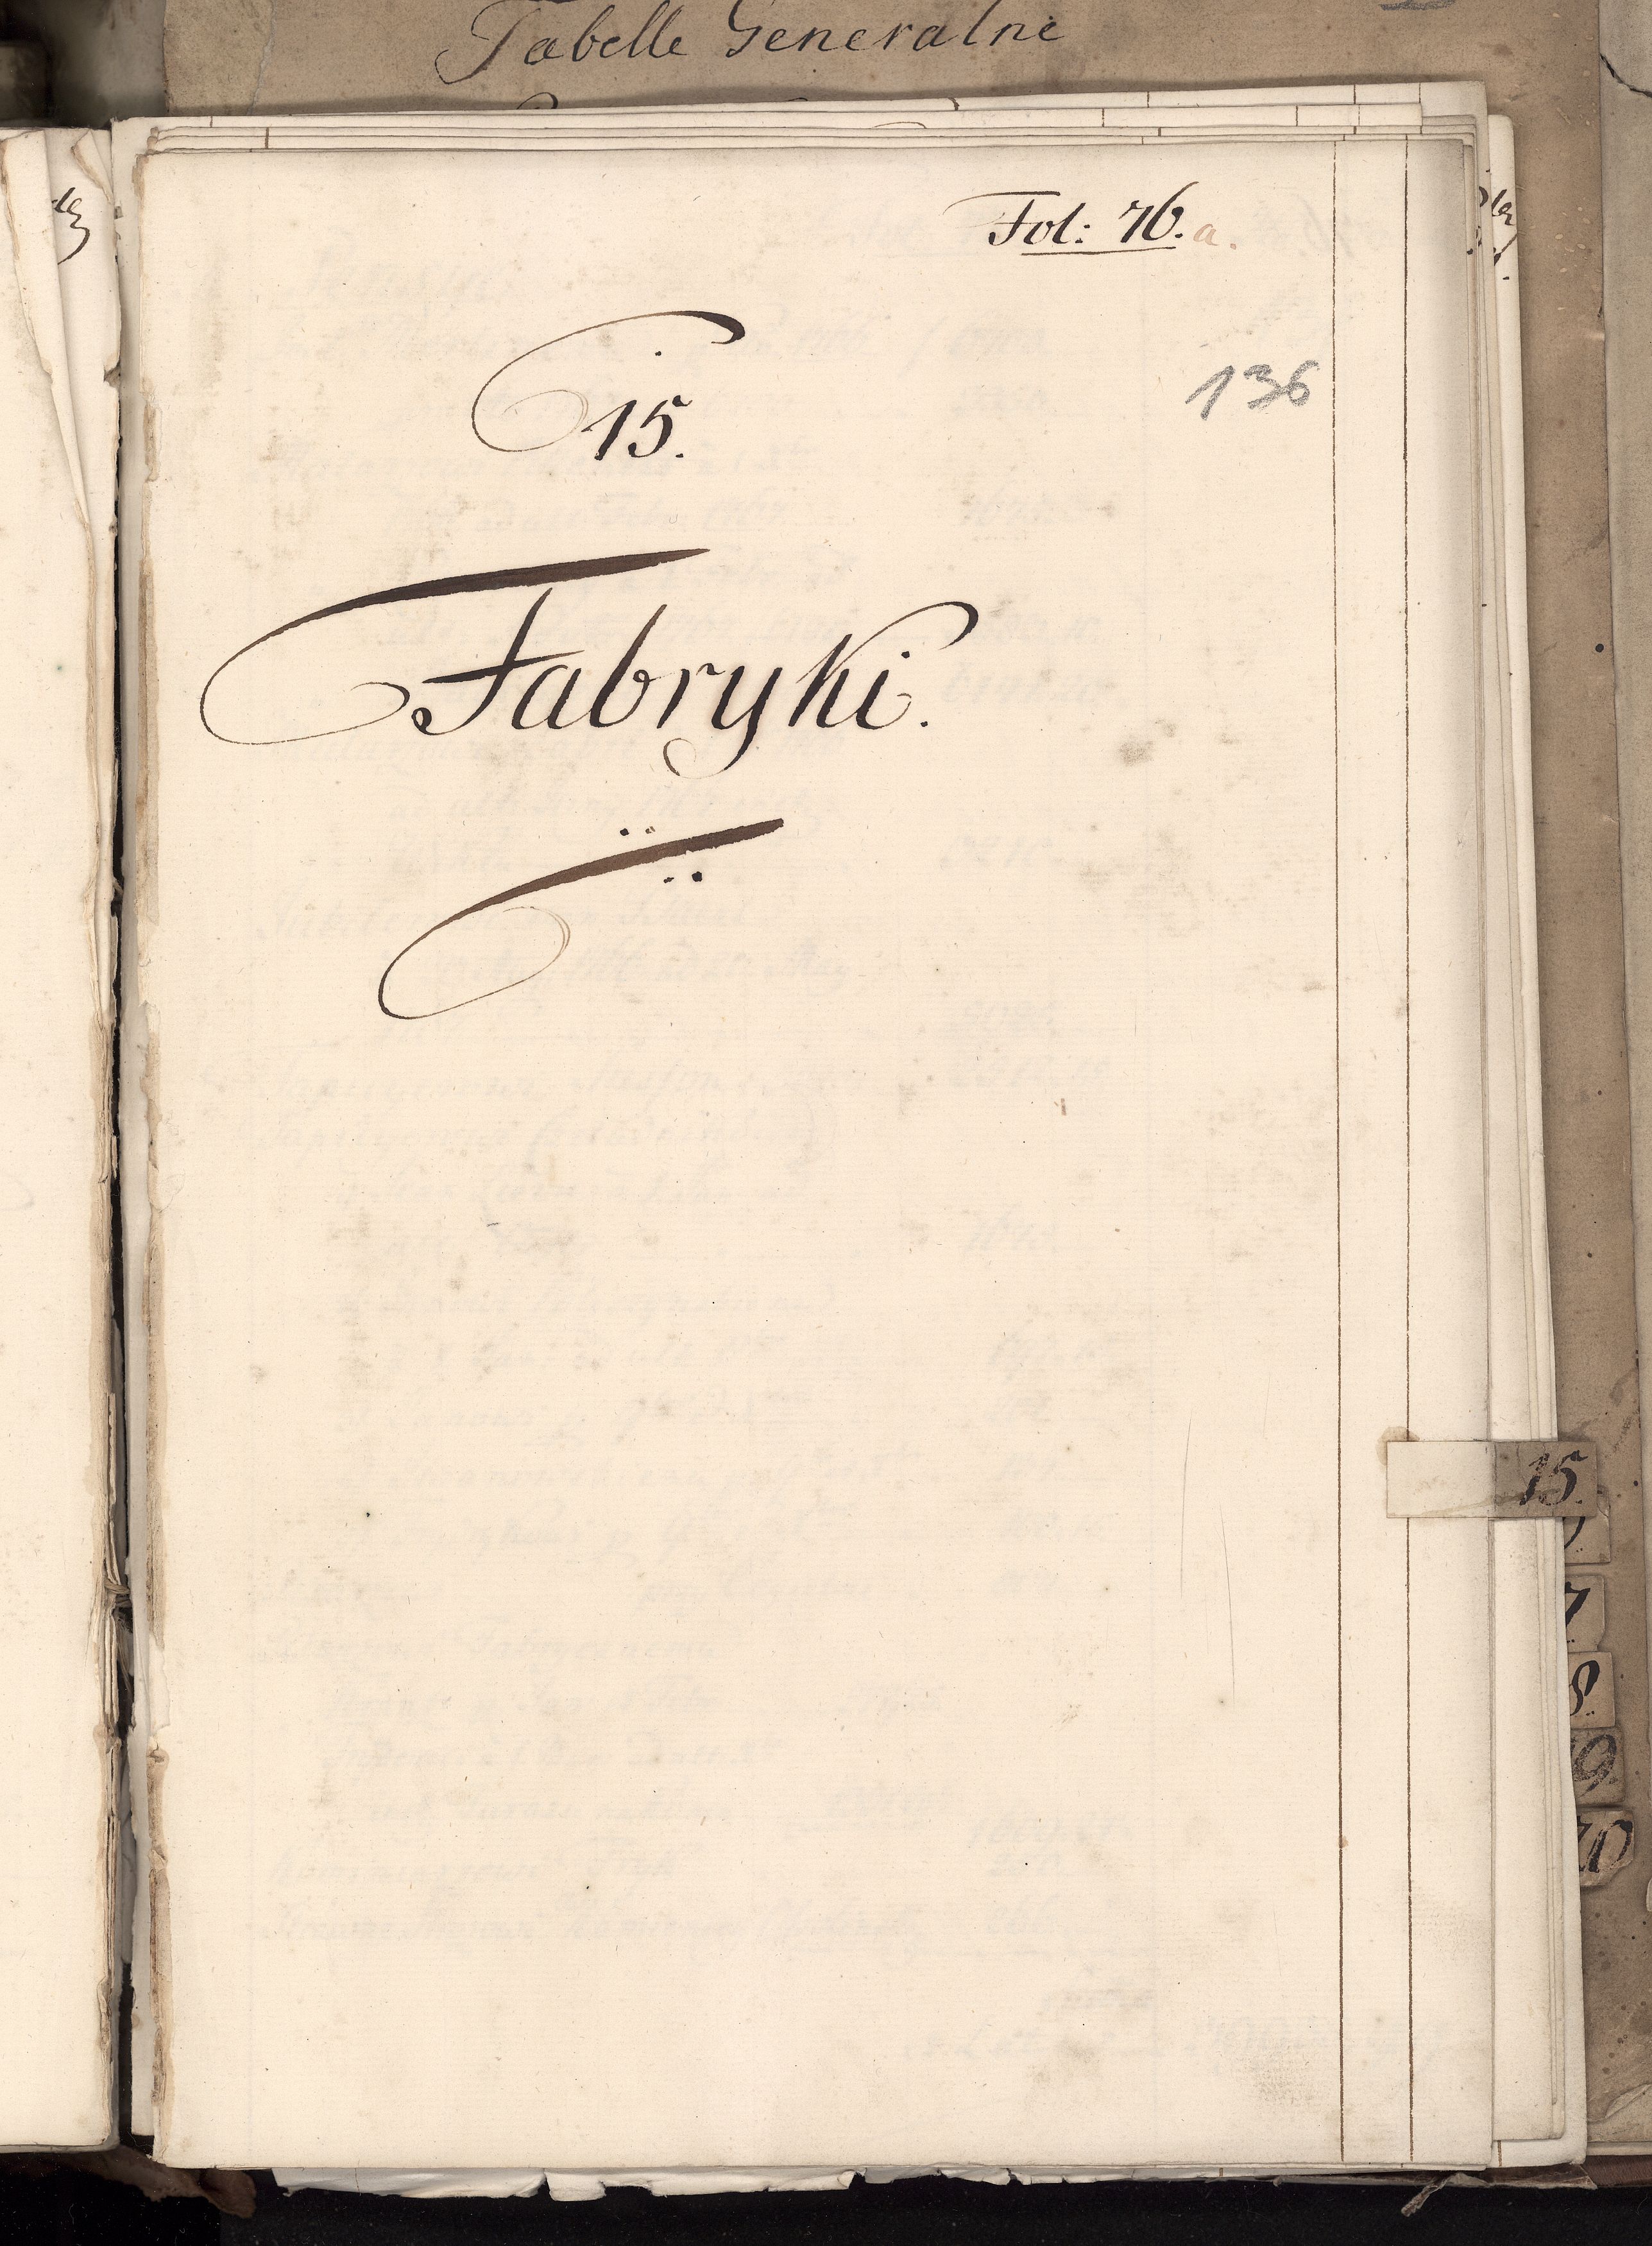 Tabelle Generalne
Fol: 76. a.
136
15.
Fabryki.
15.
7.
8.
19.
20